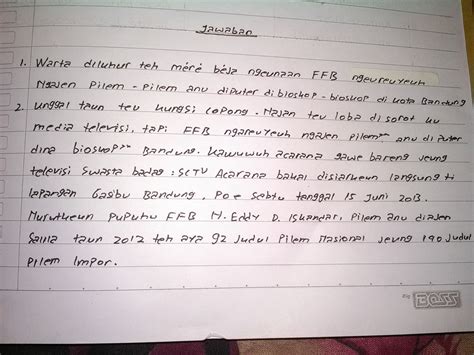 Jawaban
1. Warta diluhur teh méré béja ngeunaan FFB ngeureuyeuh
Ngajen Pilem - Pilem anu diputer dibioskop - bioskop di kota Bandung
2. unggal taun teu kungsi copong. Najan teu loba di sorot ku
media televisi, tapi FFB ngareuyeuh ngajen pilem²ⁿ anu di puter
dina bioskop²ⁿ Bandung. Kawuwuh acarana gawe bareng jeung
televisi Swasta badag : SCTV Acarana bakal disiarkeun langsung ti
lapangan Gasibu Bandung, Poe Sabtu tanggal 15 Juni 2013.
Nurutkeun Pupuhu FFB H. Eddy D. Iskandar, Pilem anu diajen
Salila taun 2012 teh aya 92 Judul Pilem Nasional jeung 190 Judul
Pilem Impor.
BOSS